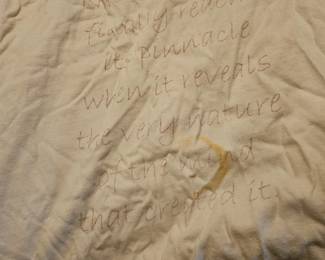 finally reach
it. Pinnacle
when it reveals
the very nature
of the mind
that created it.